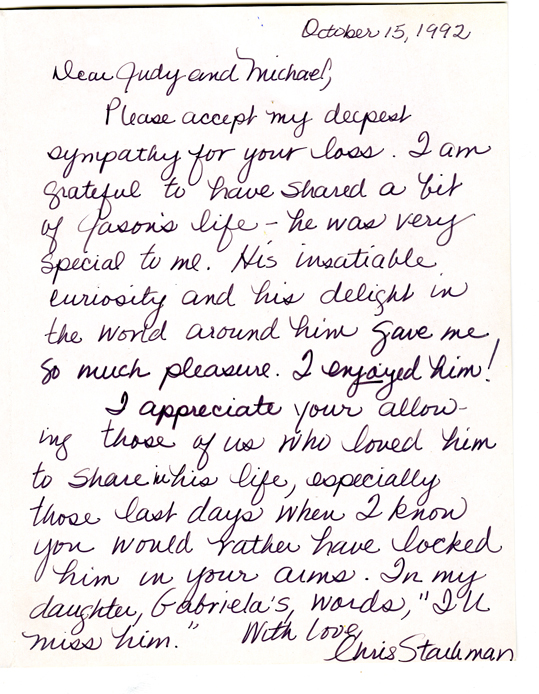 October 15, 1992
Dear Judy and Michael,
Please accept my deepest
sympathy for your loss. I am
grateful to have shared a bit
of Jason's life - he was very
special to me. His insatiable
curiosity and his delight in
the world around him gave me
so much pleasure. I enjoyed him!
I appreciate your allow-
ing those of us who loved him
to share in his life, especially
those last days when I know
you would rather have locked
him in your arms. In my
daughter, Gabriela's, words, "I'll
miss him." With love,
Chris Stackman